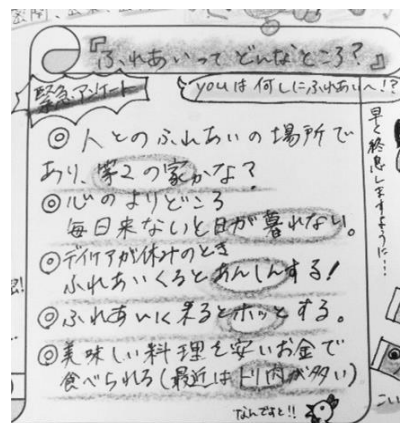 『ふれあいって どんなところ？』
緊急アンケート
youは何しにふれあいへ!?
◎ 人とのふれあいの場所で
あり、第2の家かな？
◎ 心のよりどころ
毎日来ないと日が暮れない。
◎ デイケアが休みのとき
ふれあいくるとあんしんする！
◎ ふれあいに来るとホッとする。
◎ 美味しい料理を安いお金で
食べられる(最近はトリ肉が多い)
なんですと!!
早く終息しますように…
こい